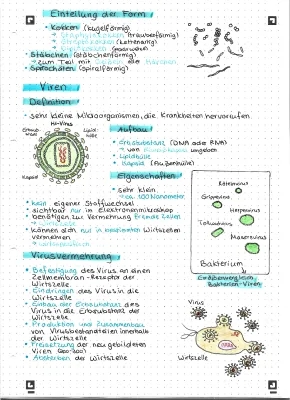 Einteilung der Form
• Kokken (kugelförmig)
(traubenförmig)
(kettenartig)
(paarweise)
• Stäbchen (stäbchenförmig)
→ zum Teil mit
• Spirochäten (spiralförmig)
Viren
Definition
• sehr kleine Mikroorganismen, die Krankheiten hervorrufen
HI-Virus
Lipid-
hülle
Kapsid
Aufbau
• Erbsubstanz (DNA oder RNA)
→ von umgeben
• Lipidhülle
• Kapsid (Außenhülle)
Eigenschaften
• sehr klein
→ ca. 100 Nanometer
• kein eigener Stoffwechsel
• sichtbar nur in Elektronenmikroskop
• benötigen zur Vermehrung fremde Zellen
• können sich nur in bestimmten Wirtszellen
vermehren
Rötelnvirus
Grippevirus
Herpesvirus
Tollwutvirus
Masernvirus
Bakterium
Größenvergleich
Bakterien-Viren
Virusvermehrung
• Befestigung des Virus an einen
Zellmembran-Rezeptor der
Wirtszelle
• Eindringen des Virus in die
Wirtszelle
• Einbau der Erbsubstanz des
Virus in die Erbsubstanz der
Wirtszelle
• Produktion und Zusammenbau
von Virusbestandteilen innerhalb
der Wirtszelle
• Freisetzung der neu gebildeten
Viren
• Absterben der Wirtszelle
Virus
Wirtszelle